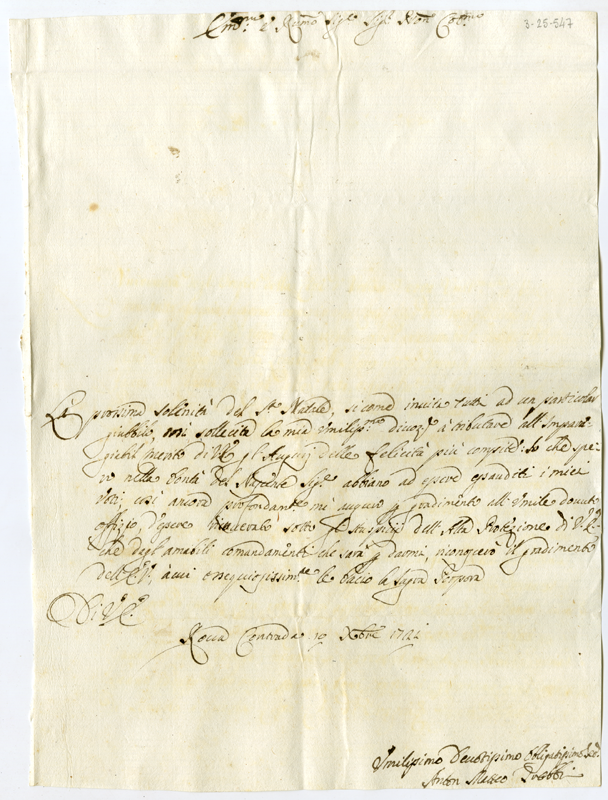 Em.mo e R.mo Sig.re Sig.re Pron Col.mo
3-25-547
La prossima solenità del S.to Natale, si come invita tutti ad un particolar
giubbilo, così sollecita la mia umiliss.ma divoz.e à tributare all'Impare-
giabil merito di V.E. gl'Augurij delle felicità più compite. Io che spe-
ro nella bontà del Nascente Sig.re abbiano ad essere essauditi i miei
Voti, così ancora profondam.te mi auguro gradimento all'umile dovuto
offizio d'essere sotto dell'Alta Protezione di V.E.
che degl'amabili comandamenti che sarà p darmi, riconoscerò il gradimento
dell'E.V., à cui ossequiosissim.te le bacio la Sagra Porpora
Di V.E.
Rocca Contrada 19 Xbre 172
Umilissimo Devotissimo Obligatissimo
Anton Matteo